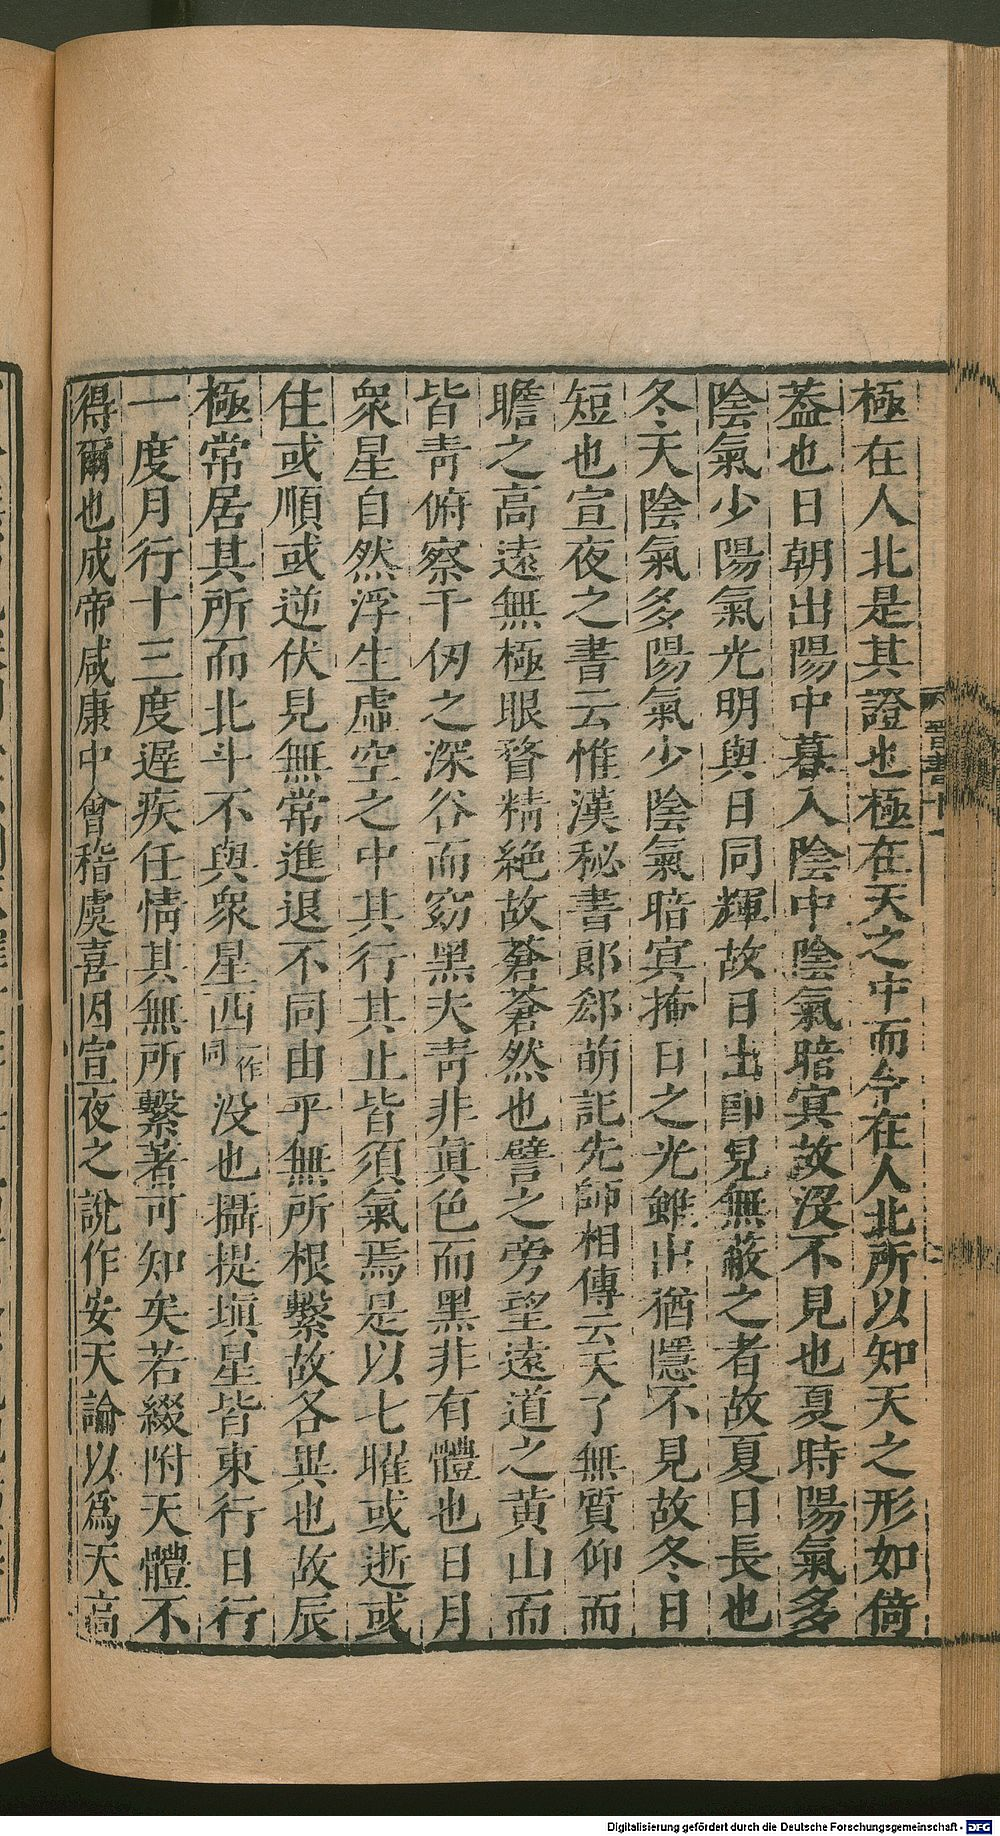 極在人北是其證也極在天之中而今在人北所以知天之形如倚
蓋也日朝出陽中暮入陰中陰氣暗㝠故没不見也夏時陽氣多
陰氣少陽氣光明與日同輝故日出即見無蔽之者故夏日長也
冬天陰氣多陽氣少陰氣暗㝠掩日之光雖出猶隱不見故冬日
短也宣夜之書云惟漢秘書郎郄萌記先師相傳云天了無質仰而
瞻之高遠無極眼瞀精絶故蒼蒼然也譬之旁望遠道之黄山而
皆青俯察千仞之深谷而窈黑夫青非眞色而黑非有體也日月
衆星自然浮生虛空之中其行其止皆須氣焉是以七曜或逝或
住或順或逆伏見無常進退不同由乎無所根繫故各異也故辰
極常居其所而北斗不與衆星西一作同没也攝提塡星皆東行日行
一度月行十三度遲疾任情其無所繫著可知矣若綴附天體不
得爾也成帝咸康中會稽虞喜因宣夜之說作安天論以爲天高
晉書十一
Digitalisierung gefördert durch die Deutsche Forschungsgemeinschaft - DFG